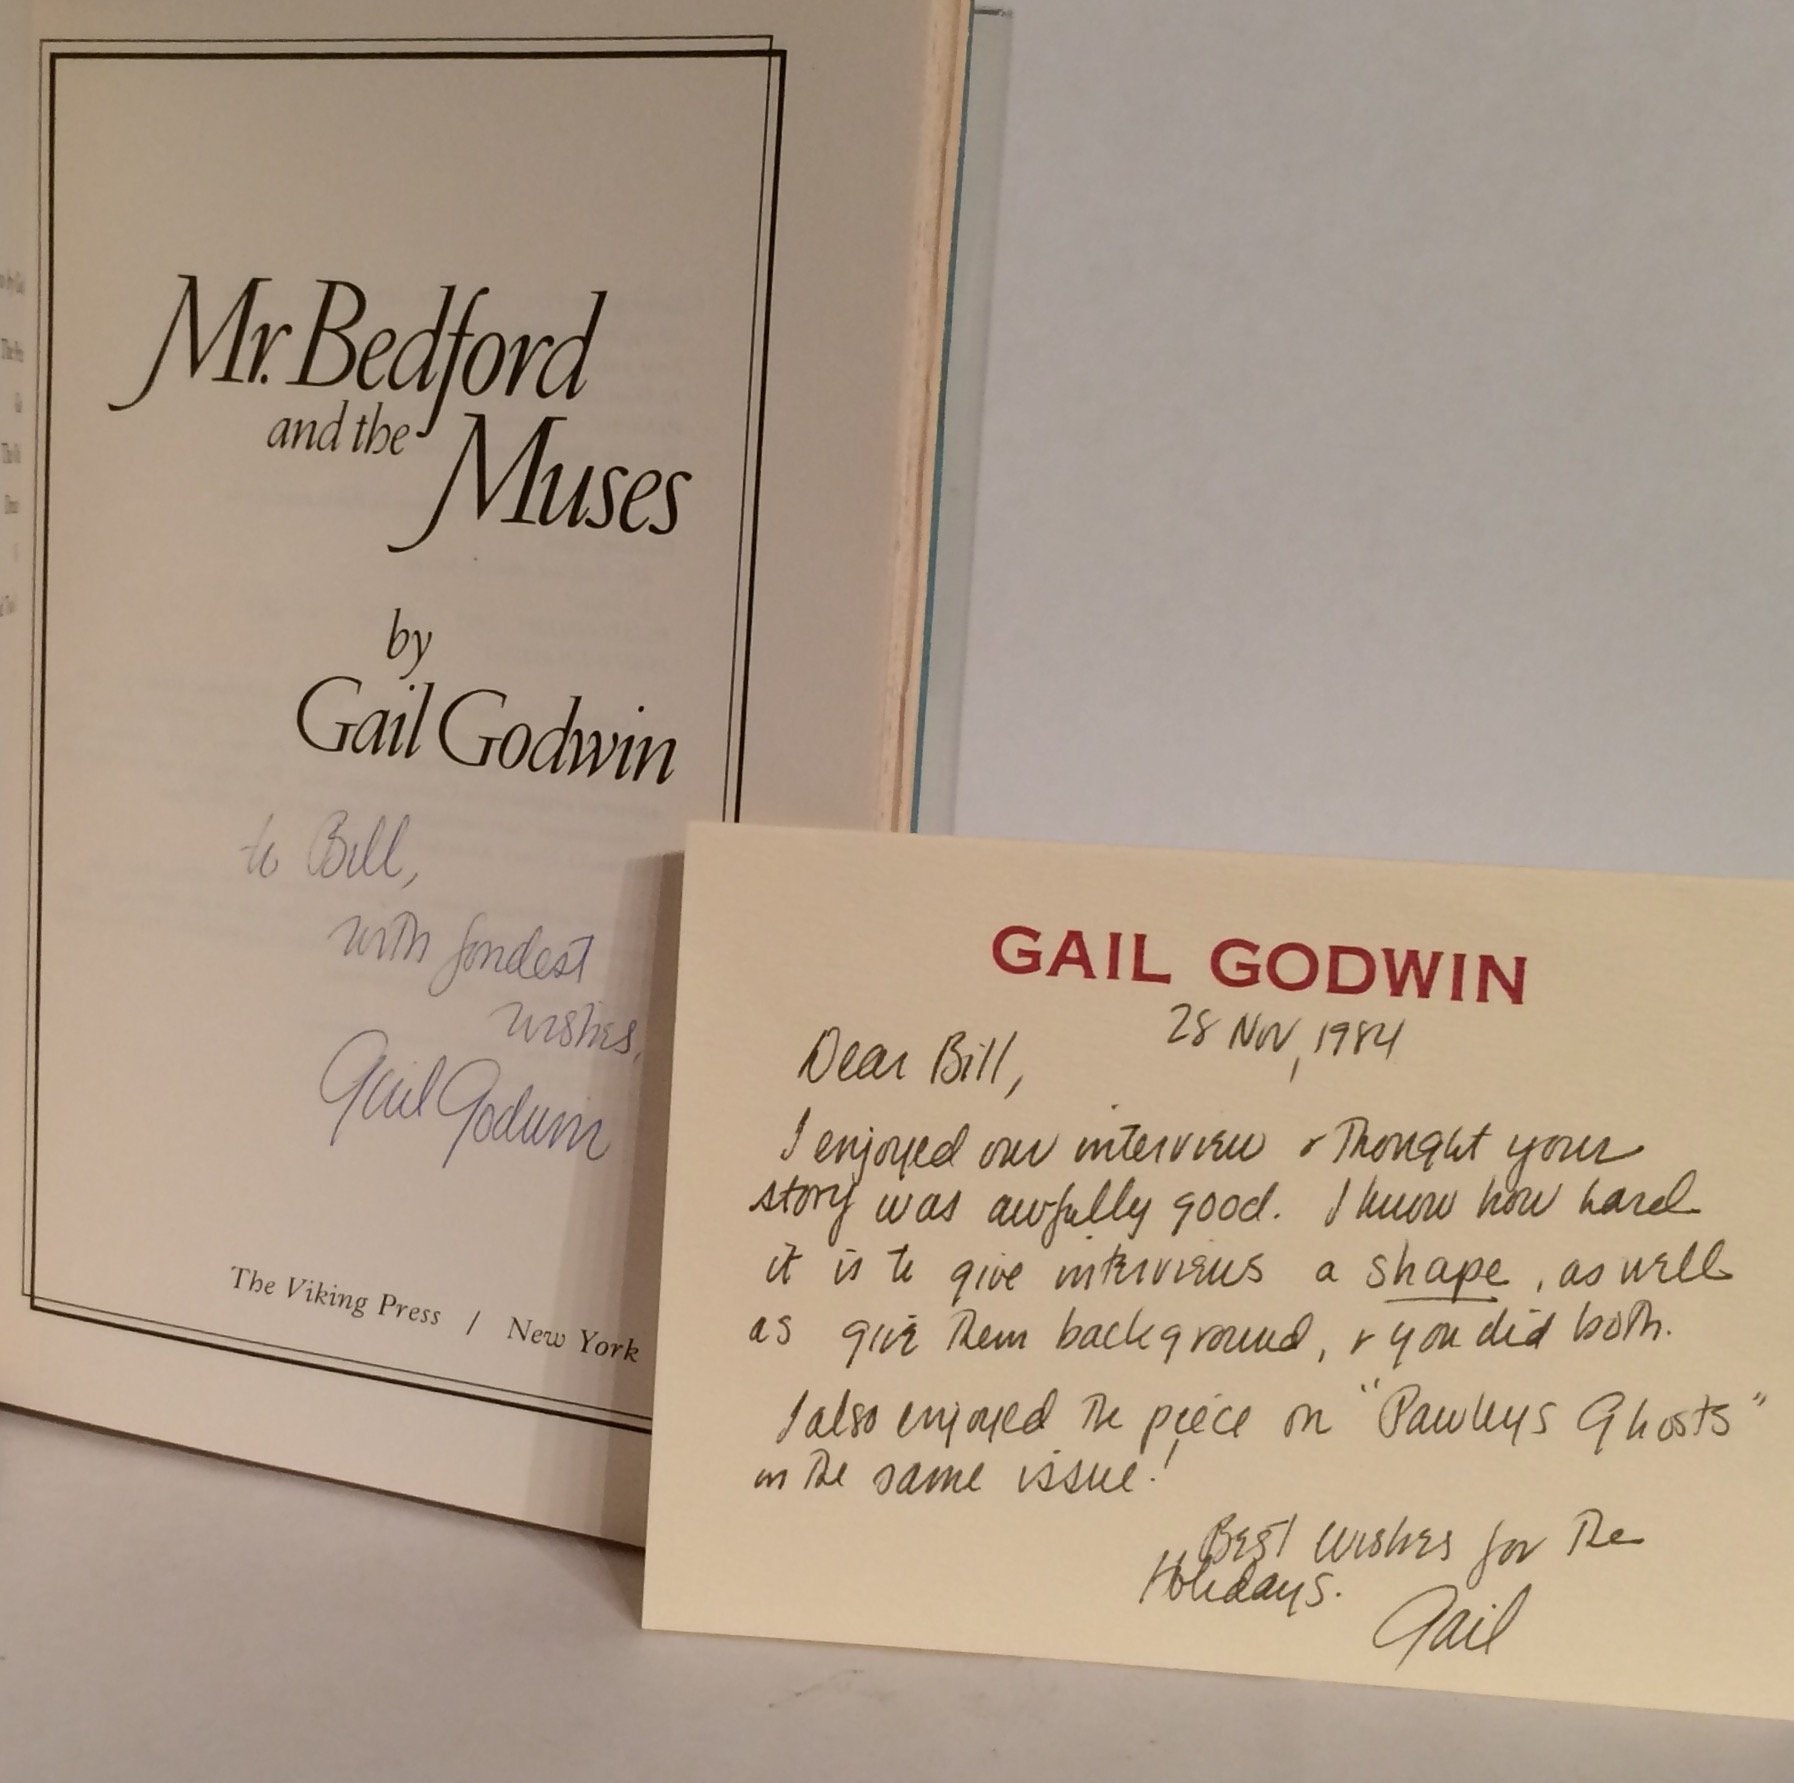 Mr. Bedford
and the
Muses
by
Gail Godwin
to Bill,
with fondest
wishes,
Gail Godwin
The Viking Press / New York
GAIL GODWIN
28 Nov, 1984
Dear Bill,
I enjoyed our interview & thought your
story was awfully good. I know how hard
it is to give interviews a shape, as well
as give them background, & you did both.
I also enjoyed the piece on "Pawleys Ghosts"
in the same issue!
Best wishes for the
Holidays.
Gail